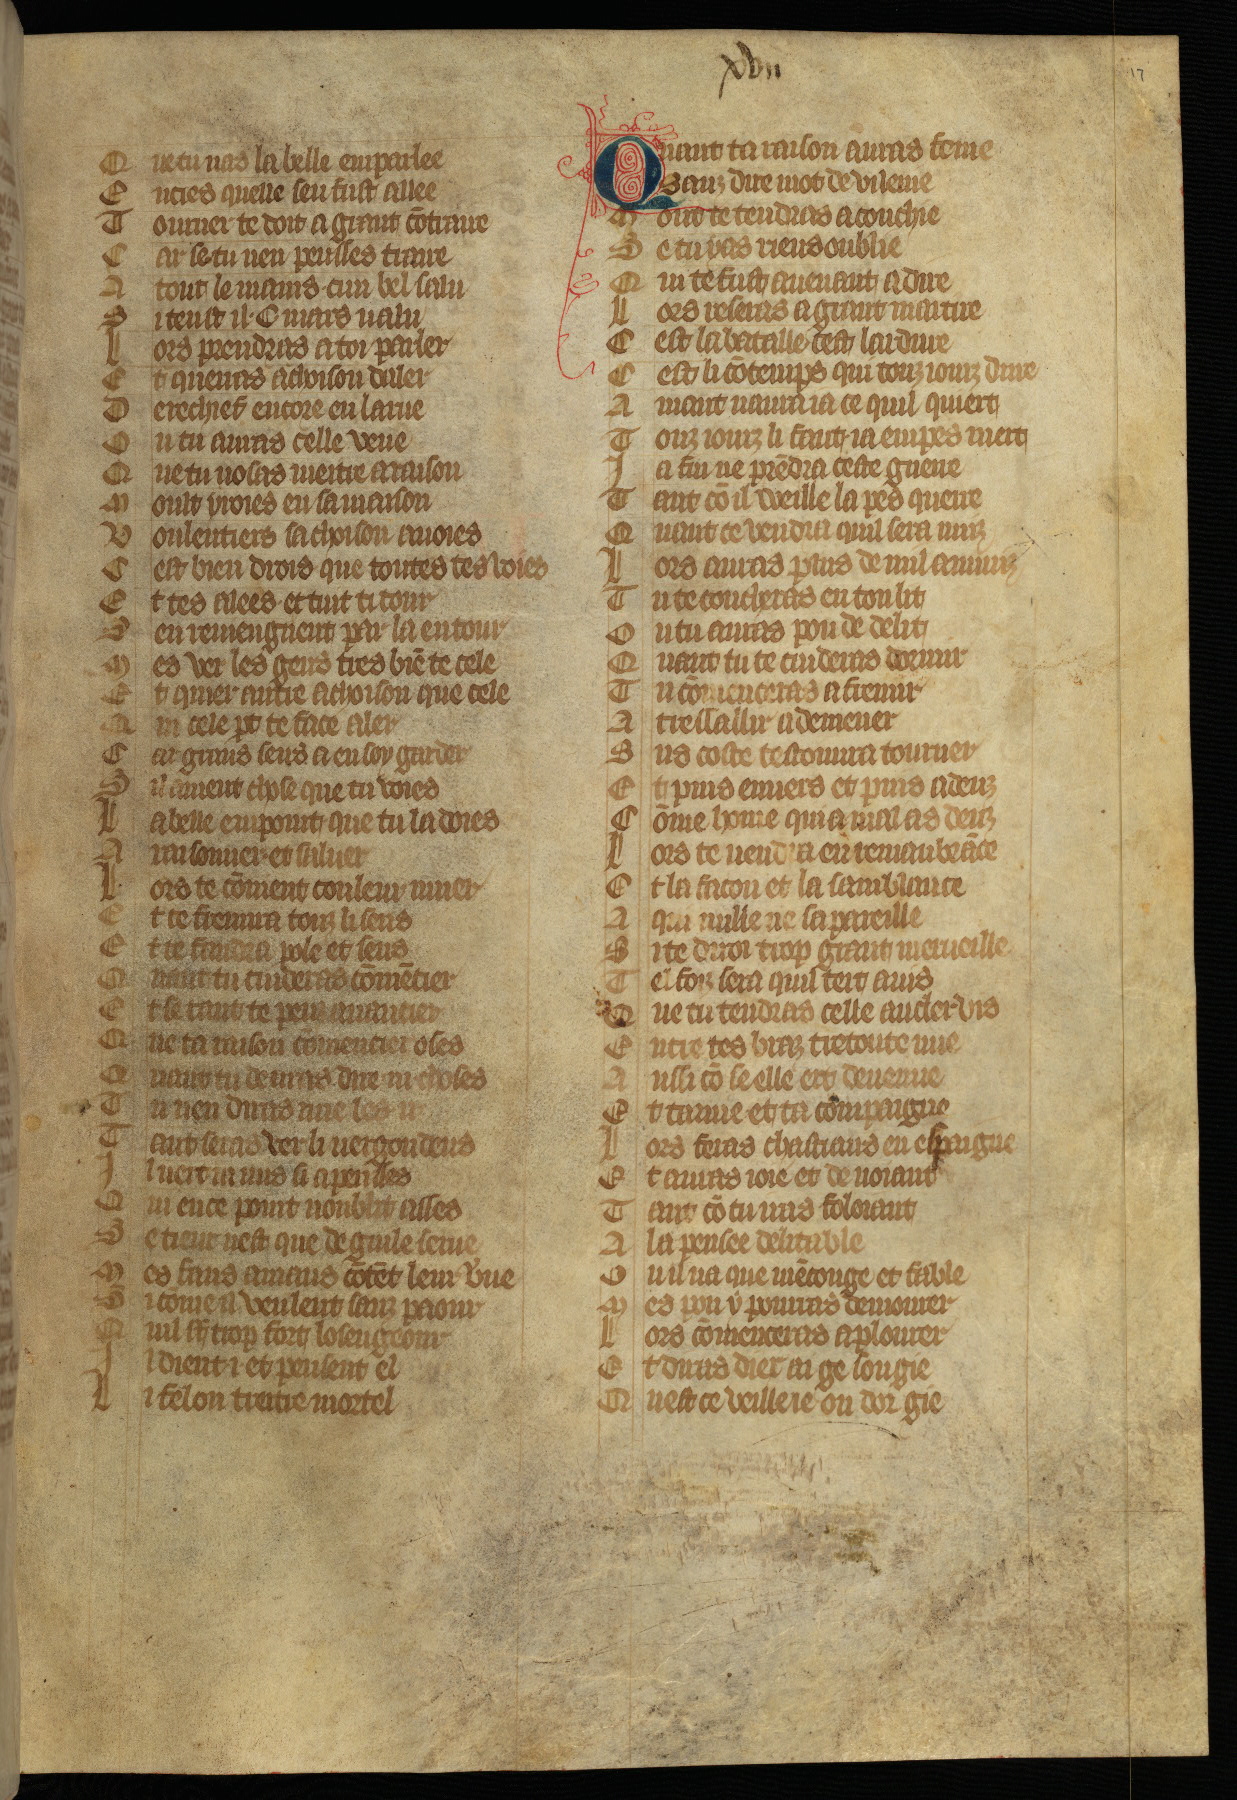 xvii
17
Que tu nas la belle emparlee
E ncies quelle sen fust allee
T ourner te doit a grant cõtraire
C ar se tu nen peusses traire
A tout le mains cun bel salu
S i teust il .C. mars valu
L ors prendras a toi parler
E t querras achoison daler
D erechief encore en la rue
O u tu auras celle veue
Q ue tu nosas mettre a raison
M oult yroies en sa maison
V oulentiers sachoison auoies
C est bien drois que toutes tes voies
E t tes alees et tuit ti tour
S en reuiengnent par la entour
M es ver les gens tres biẽ te cele
E t quier autre achoison que cele
Q ui cele pt te face aler
C ar grans sens a en soy garder
S il auient chose que tu voies
L a belle em point que tu la doies
A raisonner et saluer
L ors te cõuient couleur muer
E t te fremira touz li sens
E t te faudra pole et sens
Q uant tu cuideras cõmẽcier
E t se tant te peus auancier
Q ue ta raison cõmencier oses
Q uant tu deuras dire iii choses
T u nen diras mie les ii
T ant seras ver li vergondeus
I l niert ia nus si apensses
Q ui en ce point noublit asses
S e tieux nest que de guile serue
M es faus amans cõtẽt leur vue
S i cõme il veulent sanz paour
Q uil st trop fort losengeour
I l dient i et pensent el
L i felon treitre mortel
Quant ta raison auras fenie
Sanz dire mot de vilenie
M oult te tendras a conchie
S e tu uas riens oublie
Q ui te fust auenant a dire
L ors reseras a grant martire
C est la bataille cest lardure
C est li cõtemps qui touz iourz dure
A mant naura ia ce quil quiert
T ouz iourz li faut ia em pes niert
J a fin ne prẽdra ceste guerre
T ant cõ il veille la pes querre
Q uant ce vendra quil sera nuiz
L ors auras plus de mil anuiz
T u te coucheras en ton lit
O u tu auras pou de delit
Q uant tu te cuideras dormir
T u cõmenceras a fremir
A tressallir a demener
S us coste testouura tourner
E t puis enuers et puis adenz
C õme home qui a mal as denz
L ors te vendra en remanbrãce
E t la facon et la samblance
A qui nulle ne sapareille
S i te dirai trop grant merueille
T el foiz sera quil tert auis
Q ue tu tendras celle au cler vis
E ntre tes braz trestoute nue
A ussi cõ se elle ert deuenue
E t tamie et ta compaigne
L ors feras chastiaus en espaigne
E t auras ioie et de noiant
T ant cõ tu iras foloiant
A la pensee delitable
O u il na que mẽconge et fable
M es pou y pourras demourer
L ors cõmenceras a plourer
E t diras diex ai ge songie
Q uest ce veille ie ou dorgie